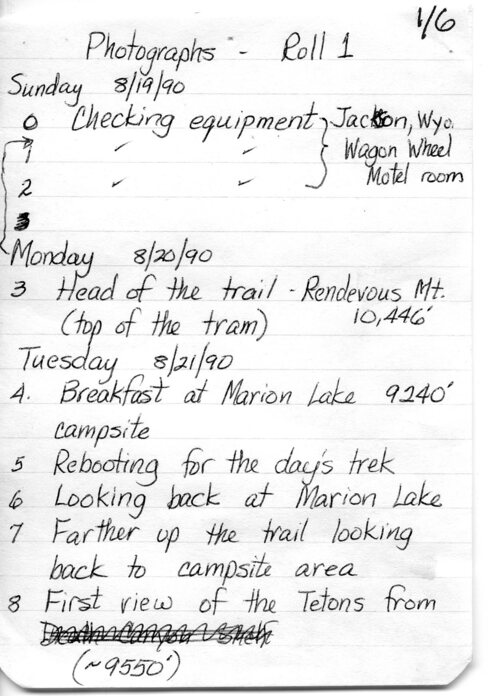 1/6
Photographs - Roll 1
Sunday 8/19/90
0 Checking equipment Jackson, Wyo.
1 " " Wagon Wheel
2 " " Motel room
3
Monday 8/20/90
3 Head of the trail - Rendevous Mt.
(top of the tram) 10,446'
Tuesday 8/21/90
4. Breakfast at Marion Lake 9240'
campsite
5 Rebooting for the day's trek
6 Looking back at Marion Lake
7 Farther up the trail looking
back to campsite area
8 First view of the Tetons from
Death Canyon Shelf
(~9550')